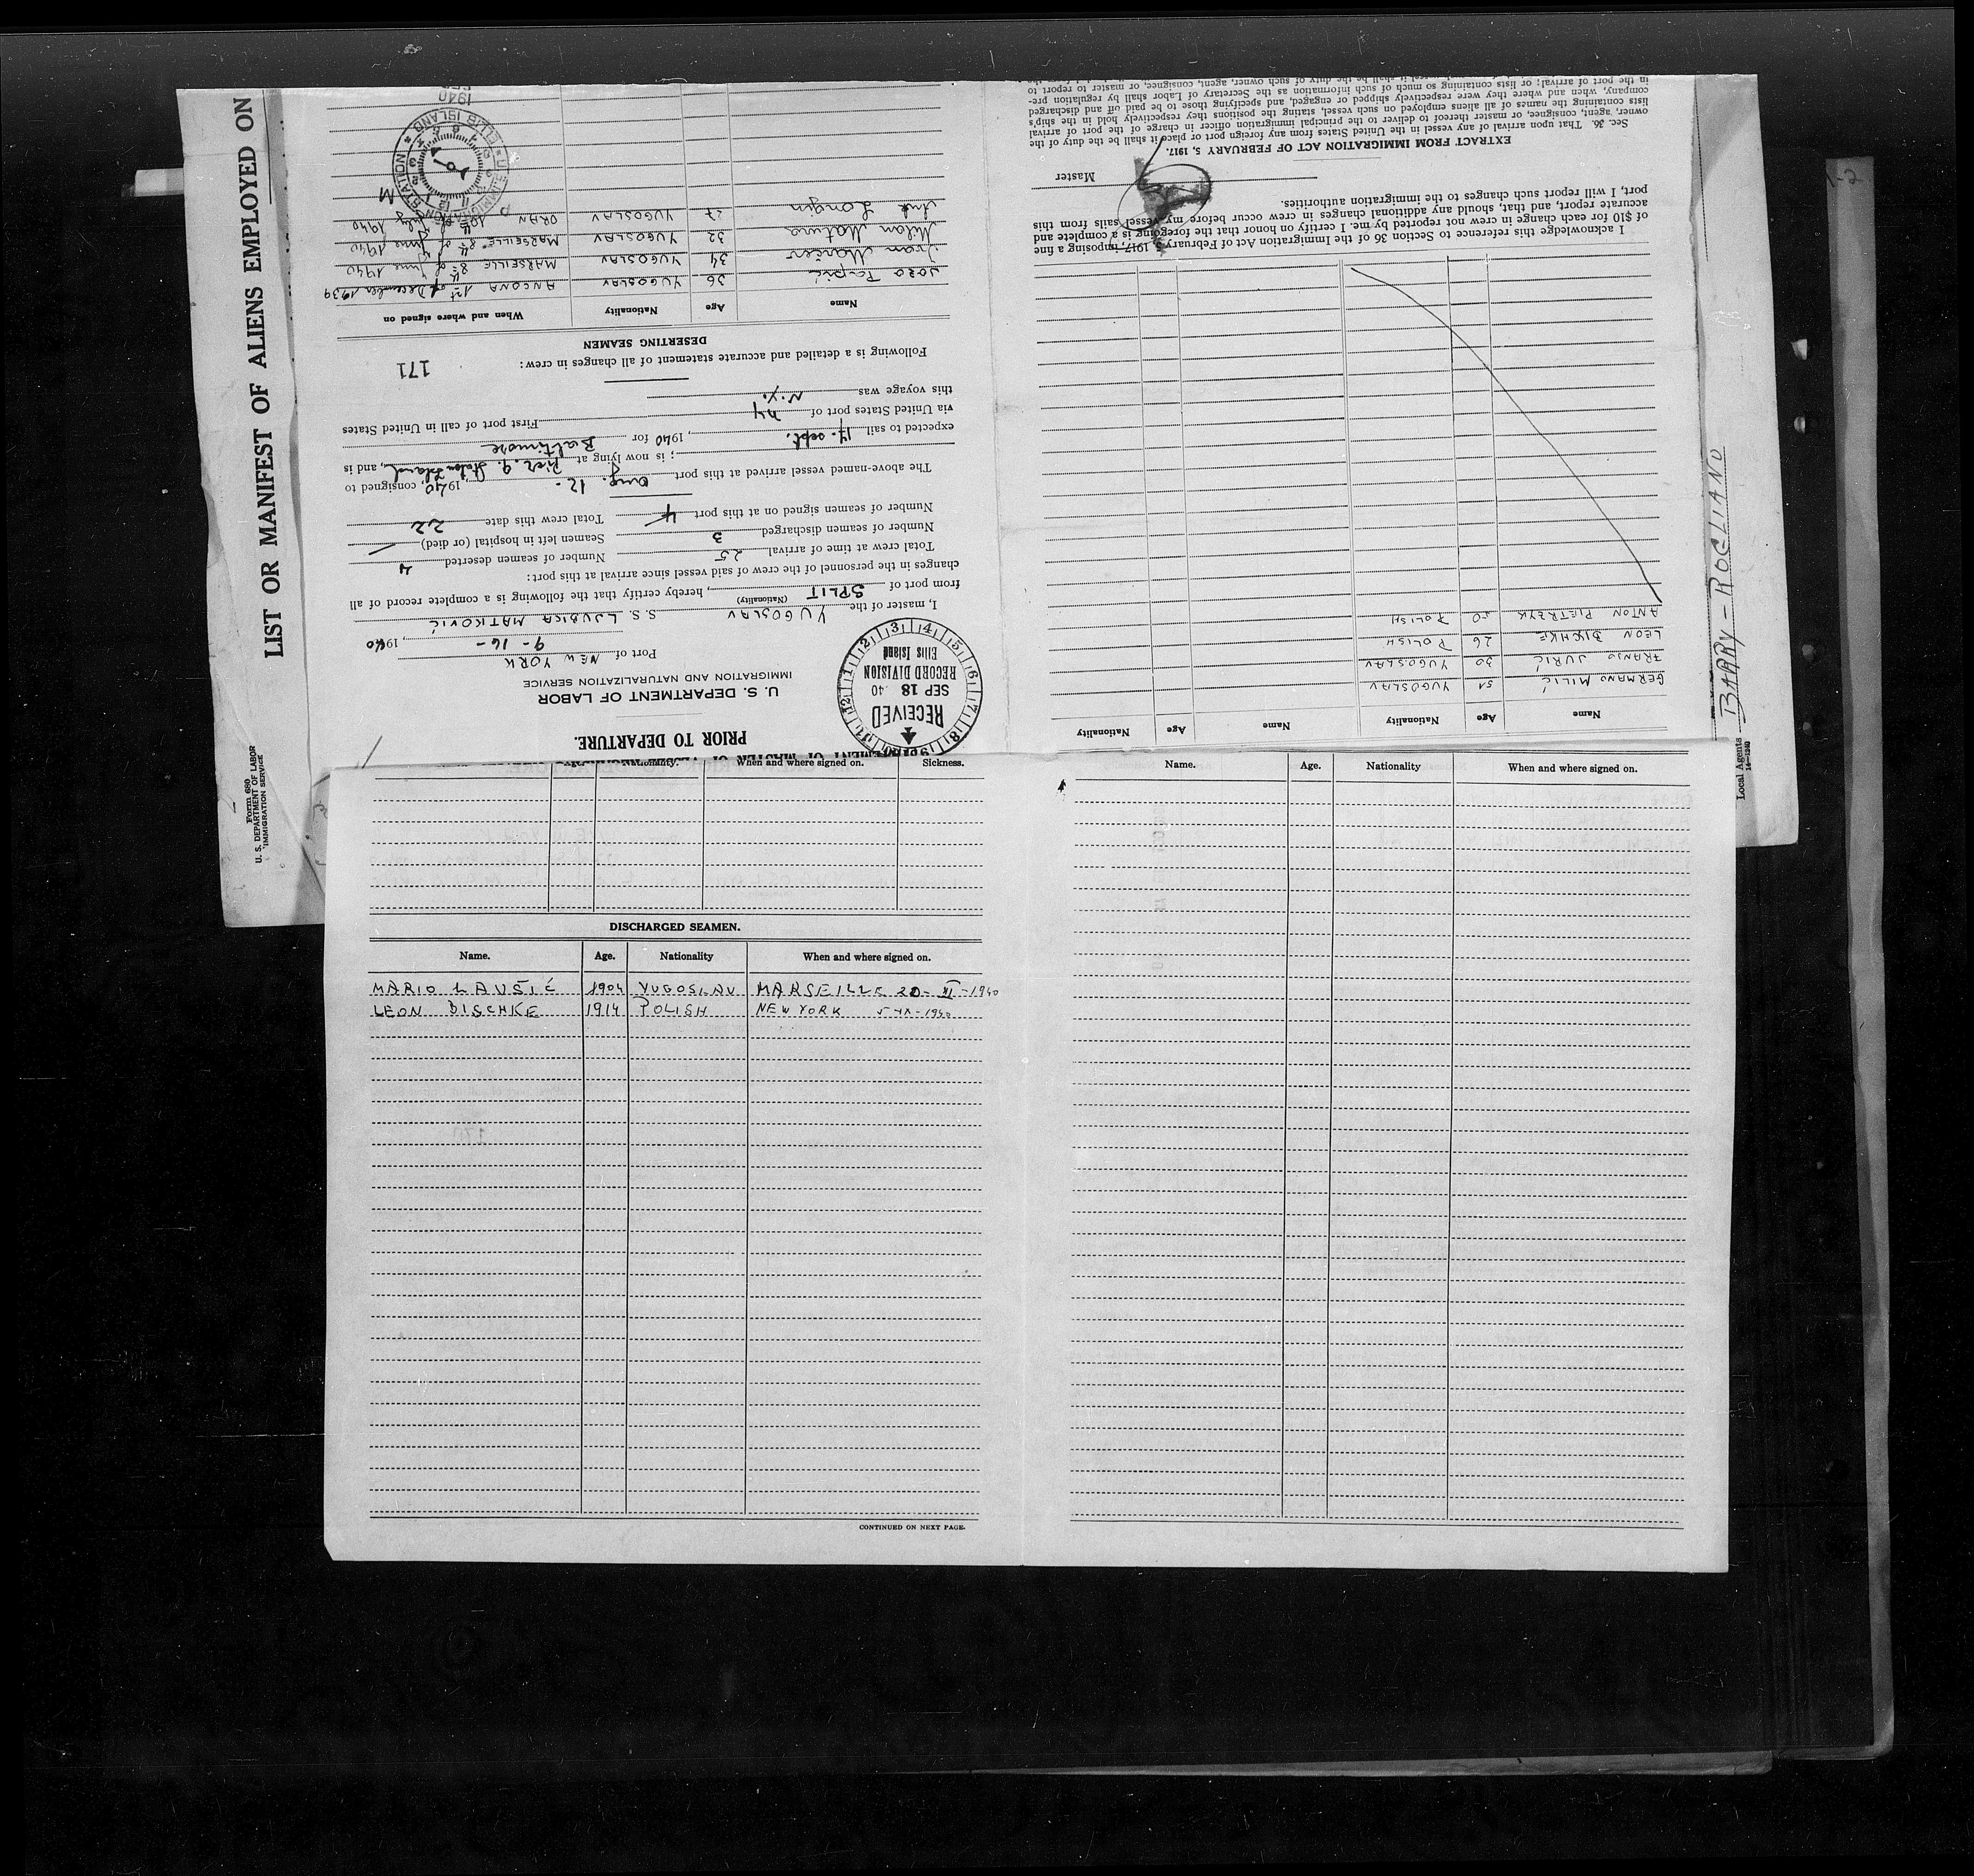 LIST OR MANIFEST OF ALIENS EMPLOYED ON
Form 680
U. S. DEPARTMENT OF LABOR
IMMIGRATION SERVICE
PRIOR TO DEPARTURE.
U. S. DEPARTMENT OF LABOR
IMMIGRATION AND NATURALIZATION SERVICE
RECEIVED
SEP 18 40
RECORD DIVISION
Ellis Island
Port of NEW YORK
9-16-, 1940
I, master of the YUGOSLAV S. S. LJUBICA MATKOVIĆ
(Nationality)
from port of SPLIT, hereby certify that the following is a complete record of all
changes in the personnel of the crew of said vessel since arrival at this port:
Total crew at time of arrival 25 Number of seamen deserted 4
Number of seamen discharged 3 Seamen left in hospital (or died)
Number of seamen signed on at this port 4 Total crew this date 22
The above-named vessel arrived at this port Aug. 12-, 1940, consigned to
; is now lying at Pier 9. Staten Island, and is
expected to sail 17. sept., 1940 for Baltimore
via United States port of NY First port of call in United States
this voyage was N.Y.
Following is a detailed and accurate statement of all changes in crew:
171
DESERTING SEAMEN
Name Age Nationality When and where signed on
JOZO 36 YUGOSLAV ANCONA 1st of December 1939
Ivan 34 YUGOSLAV MARSEILLE 8th of June 1940
Milan Matura 32 YUGOSLAV MARSEILLE 8th of June 1940
Ante Longin 27 YUGOSLAV ORAN 19th of July 1940
IMMIGRATION STATION
ELLIS ISLAND
1940
Name Age Nationality Name Age Nationality
GERMANO MILIĆ 51 YUGOSLAV
FRANJO JURIĆ 30 YUGOSLAV
LEON DISCHKE 26 POLISH
ANTON PIETRZYK 50 POLISH
I acknowledge this reference to Section 36 of the Immigration Act of February 5, 1917, imposing a fine
of $10 for each change in crew not reported by me. I certify on honor that the foregoing is a complete and
accurate report, and that, should any additional changes in crew occur before my vessel sails from this
port, I will report such changes to the immigration authorities.
Master
EXTRACT FROM IMMIGRATION ACT OF FEBRUARY 5, 1917.
Sec. 36. That upon arrival of any vessel in the United States from any foreign port or place it shall be the duty of the
owner, agent, consignee, or master thereof to deliver to the principal immigration officer in charge of the port of arrival
lists containing the names of all aliens employed on such vessel, stating the positions they respectively hold in the ship's
company, when and where they were respectively shipped or engaged, and specifying those to be paid off and discharged
in the port of arrival; or lists containing so much of such information as the Secretary of Labor shall by regulation pre-
BARRY-ROGLIANO
Local Agents
14-1240
Nationality. When and where signed on. Sickness.
DISCHARGED SEAMEN.
Name. Age. Nationality When and where signed on.
MARIO LAUŠIĆ 1904 YUGOSLAV MARSEILLE 20-XI-1940
LEON DISCHKE 1914 POLISH NEW YORK
CONTINUED ON NEXT PAGE.
Name. Age. Nationality When and where signed on.